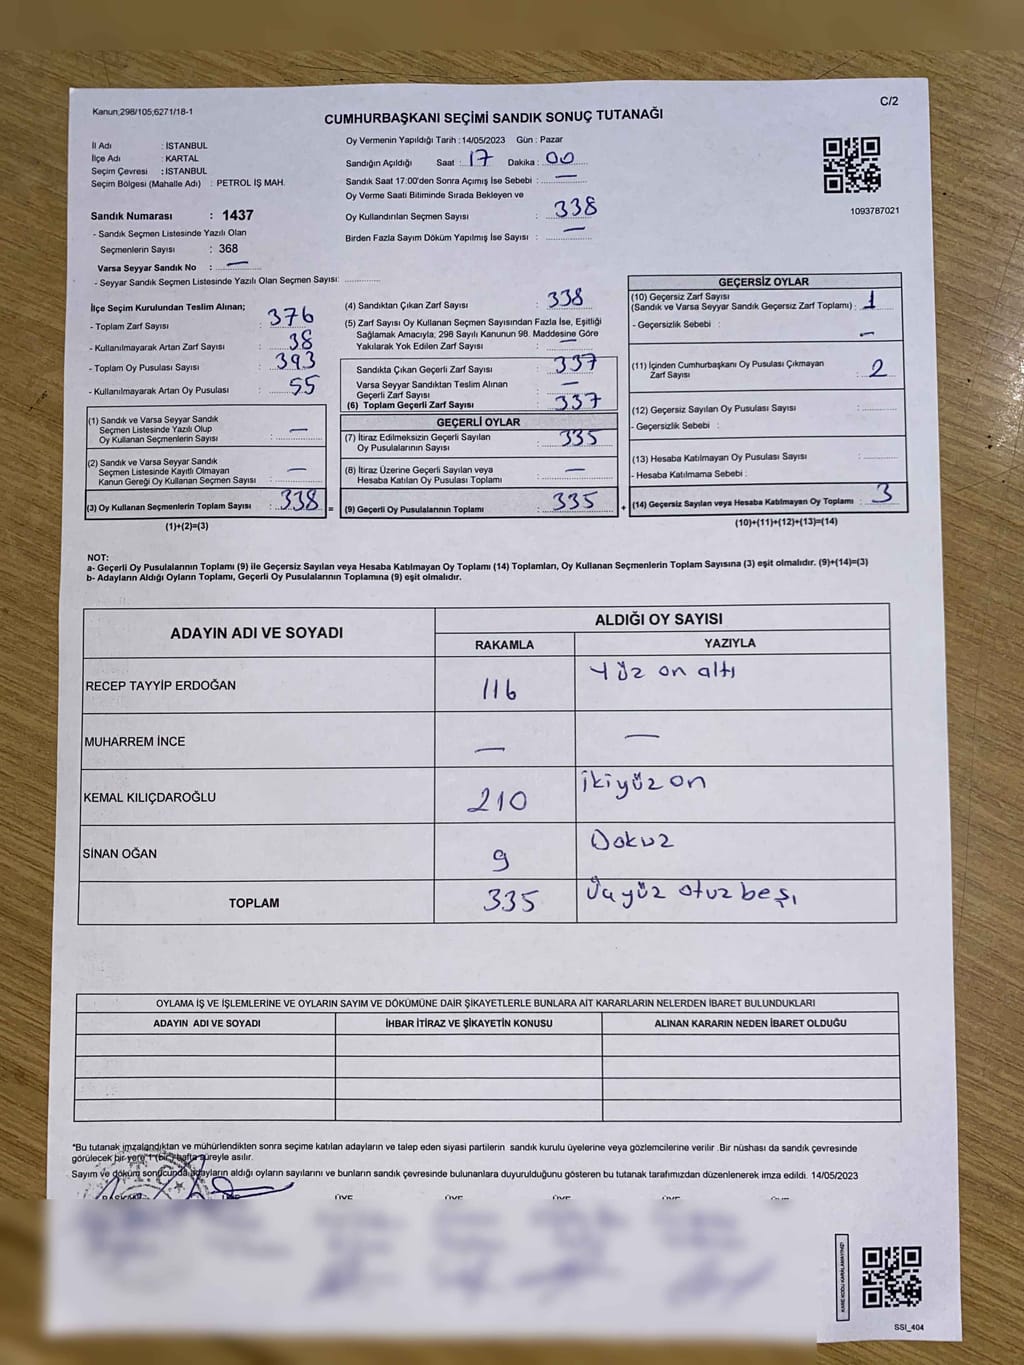 Kanun;298/105;6271/18-1
C/2
CUMHURBAŞKANI SEÇİMİ SANDIK SONUÇ TUTANAĞI
İl Adı : İSTANBUL
İlçe Adı : KARTAL
Seçim Çevresi : İSTANBUL
Seçim Bölgesi (Mahalle Adı) : PETROL İŞ MAH.
Sandık Numarası : 1437
- Sandık Seçmen Listesinde Yazılı Olan
Seçmenlerin Sayısı : 368
Varsa Seyyar Sandık No : —
- Seyyar Sandık Seçmen Listesinde Yazılı Olan Seçmen Sayısı:
Oy Vermenin Yapıldığı Tarih : 14/05/2023 Gün : Pazar
Sandığın Açıldığı Saat : 17 Dakika : 00
Sandık Saat 17:00'den Sonra Açımış İse Sebebi : —
Oy Verme Saati Bitiminde Sırada Bekleyen ve
Oy Kullandırılan Seçmen Sayısı : 338
Birden Fazla Sayım Döküm Yapılmış İse Sayısı : —
1093787021
İlçe Seçim Kurulundan Teslim Alınan;
- Toplam Zarf Sayısı : 376
- Kullanılmayarak Artan Zarf Sayısı : 38
- Toplam Oy Pusulası Sayısı : 393
- Kullanılmayarak Artan Oy Pusulası : 55
(1) Sandık ve Varsa Seyyar Sandık
Seçmen Listesinde Yazılı Olup
Oy Kullanan Seçmenlerin Sayısı : —
(2) Sandık ve Varsa Seyyar Sandık
Seçmen Listesinde Kayıtlı Olmayan
Kanun Gereği Oy Kullanan Seçmen Sayısı : —
(3) Oy Kullanan Seçmenlerin Toplam Sayısı : 338 =
(1)+(2)=(3)
(4) Sandıktan Çıkan Zarf Sayısı : 338
(5) Zarf Sayısı Oy Kullanan Seçmen Sayısından Fazla İse, Eşitliği
Sağlamak Amacıyla; 298 Sayılı Kanunun 98. Maddesine Göre
Yakılarak Yok Edilen Zarf Sayısı : —
Sandıkta Çıkan Geçerli Zarf Sayısı : 337
Varsa Seyyar Sandıktan Teslim Alınan
Geçerli Zarf Sayısı : —
(6) Toplam Geçerli Zarf Sayısı : 337
GEÇERLİ OYLAR
(7) İtiraz Edilmeksizin Geçerli Sayılan
Oy Pusulalarının Sayısı : 335
(8) İtiraz Üzerine Geçerli Sayılan veya
Hesaba Katılan Oy Pusulası Toplamı : —
(9) Geçerli Oy Pusulalarının Toplamı : 335 +
GEÇERSİZ OYLAR
(10) Geçersiz Zarf Sayısı
(Sandık ve Varsa Seyyar Sandık Geçersiz Zarf Toplamı) : 1
- Geçersizlik Sebebi : —
(11) İçinden Cumhurbaşkanı Oy Pusulası Çıkmayan
Zarf Sayısı : 2
(12) Geçersiz Sayılan Oy Pusulası Sayısı :
- Geçersizlik Sebebi :
(13) Hesaba Katılmayan Oy Pusulası Sayısı :
- Hesaba Katılmama Sebebi :
(14) Geçersiz Sayılan veya Hesaba Katılmayan Oy Toplamı : 3
(10)+(11)+(12)+(13)=(14)
NOT:
a- Geçerli Oy Pusulalarının Toplamı (9) ile Geçersiz Sayılan veya Hesaba Katılmayan Oy Toplamı (14) Toplamları, Oy Kullanan Seçmenlerin Toplam Sayısına (3) eşit olmalıdır. (9)+(14)=(3)
b- Adayların Aldığı Oyların Toplamı, Geçerli Oy Pusulalarının Toplamına (9) eşit olmalıdır.
ADAYIN ADI VE SOYADI ALDIĞI OY SAYISI
RAKAMLA YAZIYLA
RECEP TAYYİP ERDOĞAN 116 Yüz on altı
MUHARREM İNCE — —
KEMAL KILIÇDAROĞLU 210 İkiyüz on
SİNAN OĞAN 9 Dokuz
TOPLAM 335 Üçyüz otuz beş
OYLAMA İŞ VE İŞLEMLERİNE VE OYLARIN SAYIM VE DÖKÜMÜNE DAİR ŞİKAYETLERLE BUNLARA AİT KARARLARIN NELERDEN İBARET BULUNDUKLARI
ADAYIN ADI VE SOYADI İHBAR İTİRAZ VE ŞİKAYETİN KONUSU ALINAN KARARIN NEDEN İBARET OLDUĞU
*Bu tutanak imzalandıktan ve mühürlendikten sonra seçime katılan adayların ve talep eden siyasi partilerin sandık kurulu üyelerine veya gözlemcilerine verilir .Bir nüshası da sandık çevresinde
görülecek bir yere 1 (bir) hafta süreyle asılır.
Sayım ve döküm sonucunda adayların aldığı oyların sayılarını ve bunların sandık çevresinde bulunanlara duyurulduğunu gösteren bu tutanak tarafımızdan düzenlenerek imza edildi. 14/05/2023
BAŞKAN ÜYE ÜYE ÜYE ÜYE ÜYE
SSI_404